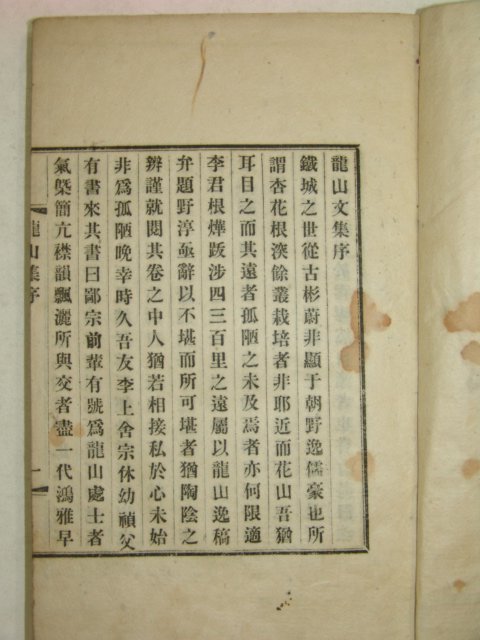 龍山文集序
鐵城之世從古彬蔚非顯于朝野逸儒豪也所
謂杏花根深餘叢栽培者非耶近而花山吾猶
耳目之而其遠者孤陋之未及焉者亦何限適
李君根燁跋涉四三百里之遠屬以龍山逸稿
弁題野淳亟辭以不堪而所可堪者猶陶陰之
辨謹就閱其卷之中人猶若相接私於心未始
非爲孤陋晚幸時久吾友李上舍宗休幼禎父
有書來其書曰鄙宗前輩有號爲龍山處士者
氣槩簡亢襟韻飄灑所與交者盡一代鴻雅早
龍山集序
一